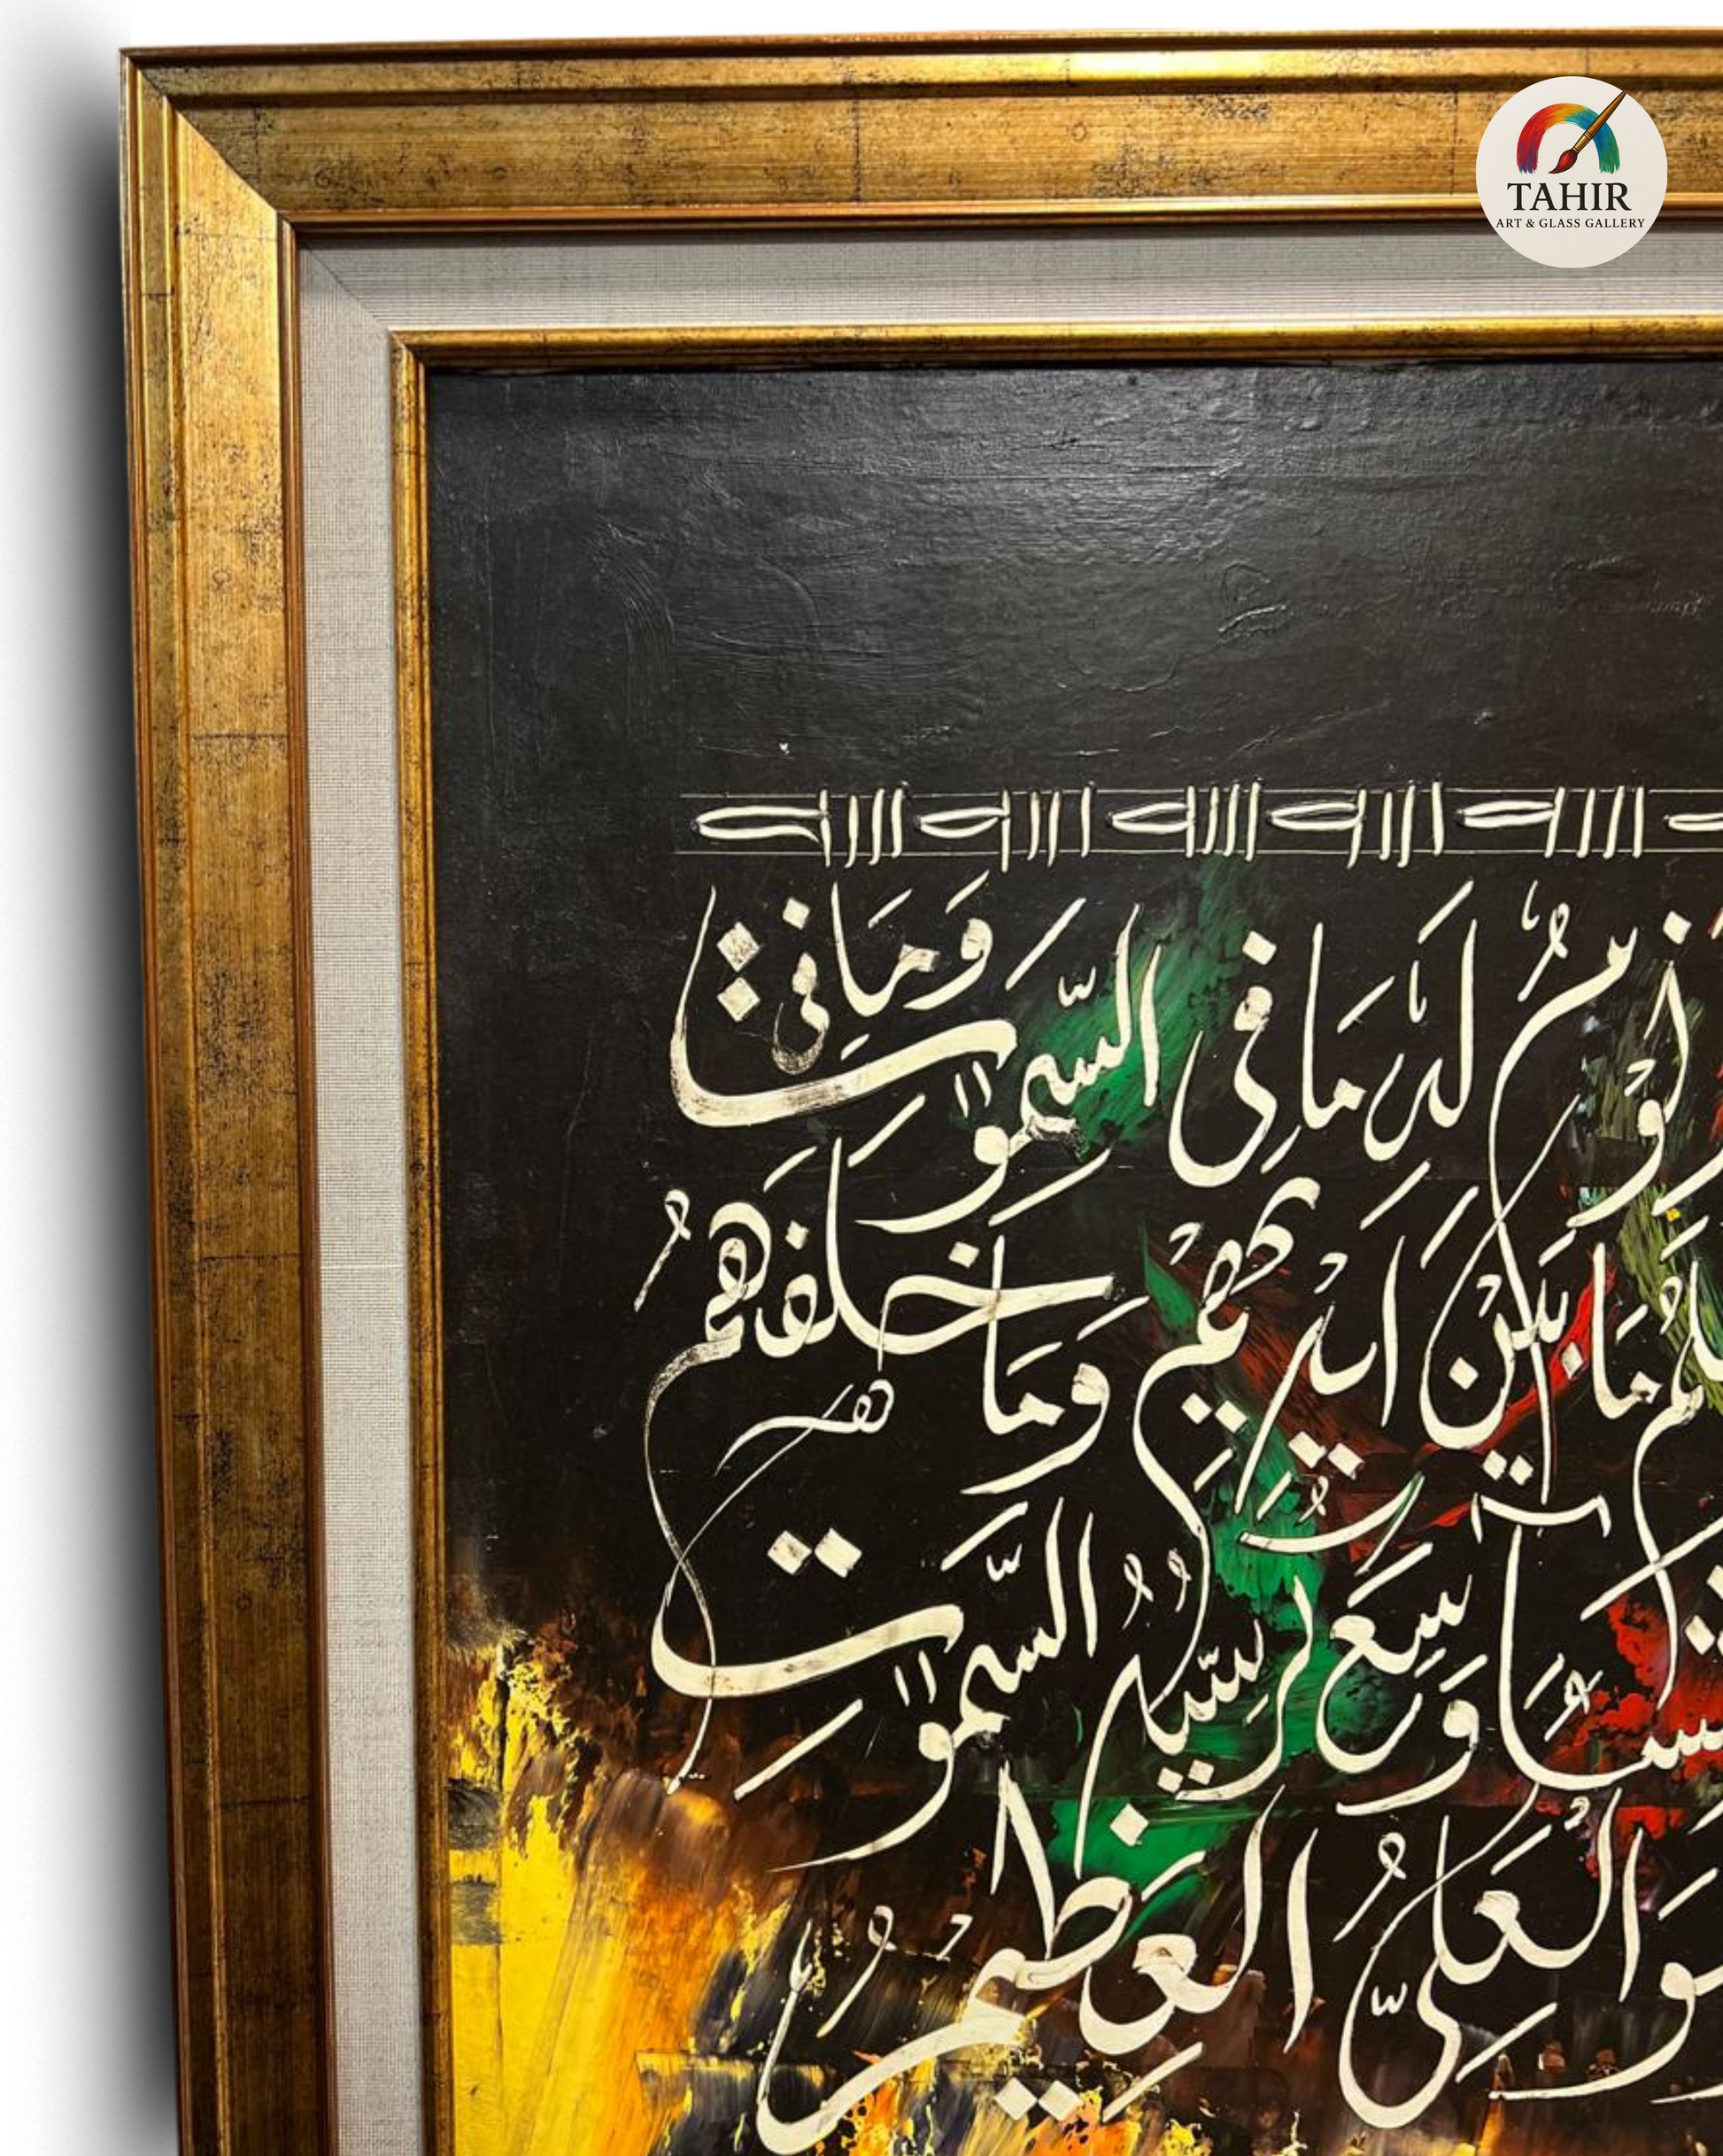 TAHIR
ART & GLASS GALLERY
نَوْمٌ لَهٗ مَا فِی السَّمٰوٰتِ وَمَا فِی
مَا بَیْنَ اَیْدِیْهِمْ وَمَا خَلْفَهُمْ
شَآءَ وَسِعَ کُرْسِیُّهُ السَّمٰوٰتِ
الْعَلِیُّ الْعَظِیْمُ